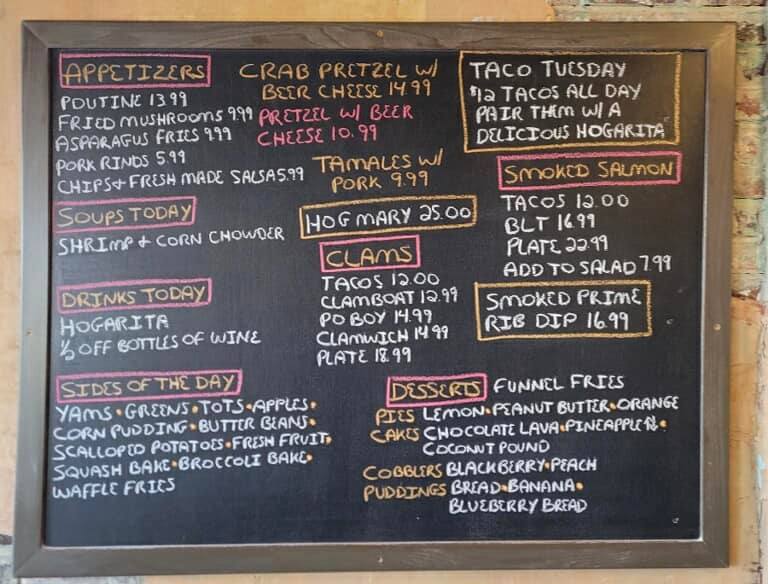 APPETIZERS
POUTINE 13.99
FRIED MUSHROOMS 9.99
ASPARAGUS FRIES 9.99
PORK RINDS 5.99
CHIPS + FRESH MADE SALSA 5.99
CRAB PRETZEL W/
BEER CHEESE 14.99
PRETZEL W/ BEER
CHEESE 10.99
TAMALES W/
PORK 9.99
TACO TUESDAY
$12 TACOS ALL DAY
PAIR THEM W/ A
DELICIOUS HOGARITA
SOUPS TODAY
SHRIMP + CORN CHOWDER
HOG MARY 25.00
SMOKED SALMON
TACOS 12.00
BLT 16.99
PLATE 22.99
ADD TO SALAD 7.99
DRINKS TODAY
HOGARITA
1/2 OFF BOTTLES OF WINE
CLAMS
TACOS 12.00
CLAMBOAT 12.99
PO BOY 14.99
CLAMWICH 14.99
PLATE 18.99
SMOKED PRIME
RIB DIP 16.99
SIDES OF THE DAY
YAMS • GREENS • TOTS • APPLES •
CORN PUDDING • BUTTER BEANS •
SCALLOPED POTATOES • FRESH FRUIT •
SQUASH BAKE • BROCCOLI BAKE •
WAFFLE FRIES
DESSERTS FUNNEL FRIES
PIES LEMON • PEANUT BUTTER • ORANGE
CAKES CHOCOLATE LAVA • PINEAPPLE ↑↓ •
COCONUT POUND
COBBLERS BLACKBERRY • PEACH
PUDDINGS BREAD • BANANA •
BLUEBERRY BREAD